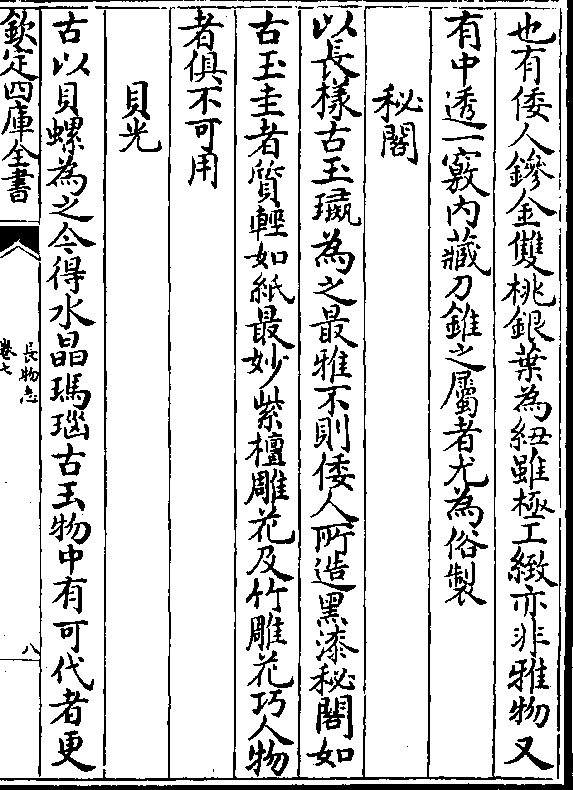 也有倭人鏒金雙桃銀葉為紐雖極工緻亦非雅物又
有中透一竅内藏刀錐之屬者尤為俗製
秘閣
以長様古玉璏為之最雅不則倭人所造黒漆秘閣如
古玉圭者質輕如紙最妙紫檀雕花及竹雕花巧人物
者俱不可用
貝光
古以貝螺為之今得水晶瑪瑙古玉物中有可代者更
欽定四庫全書
長物志
卷七
八